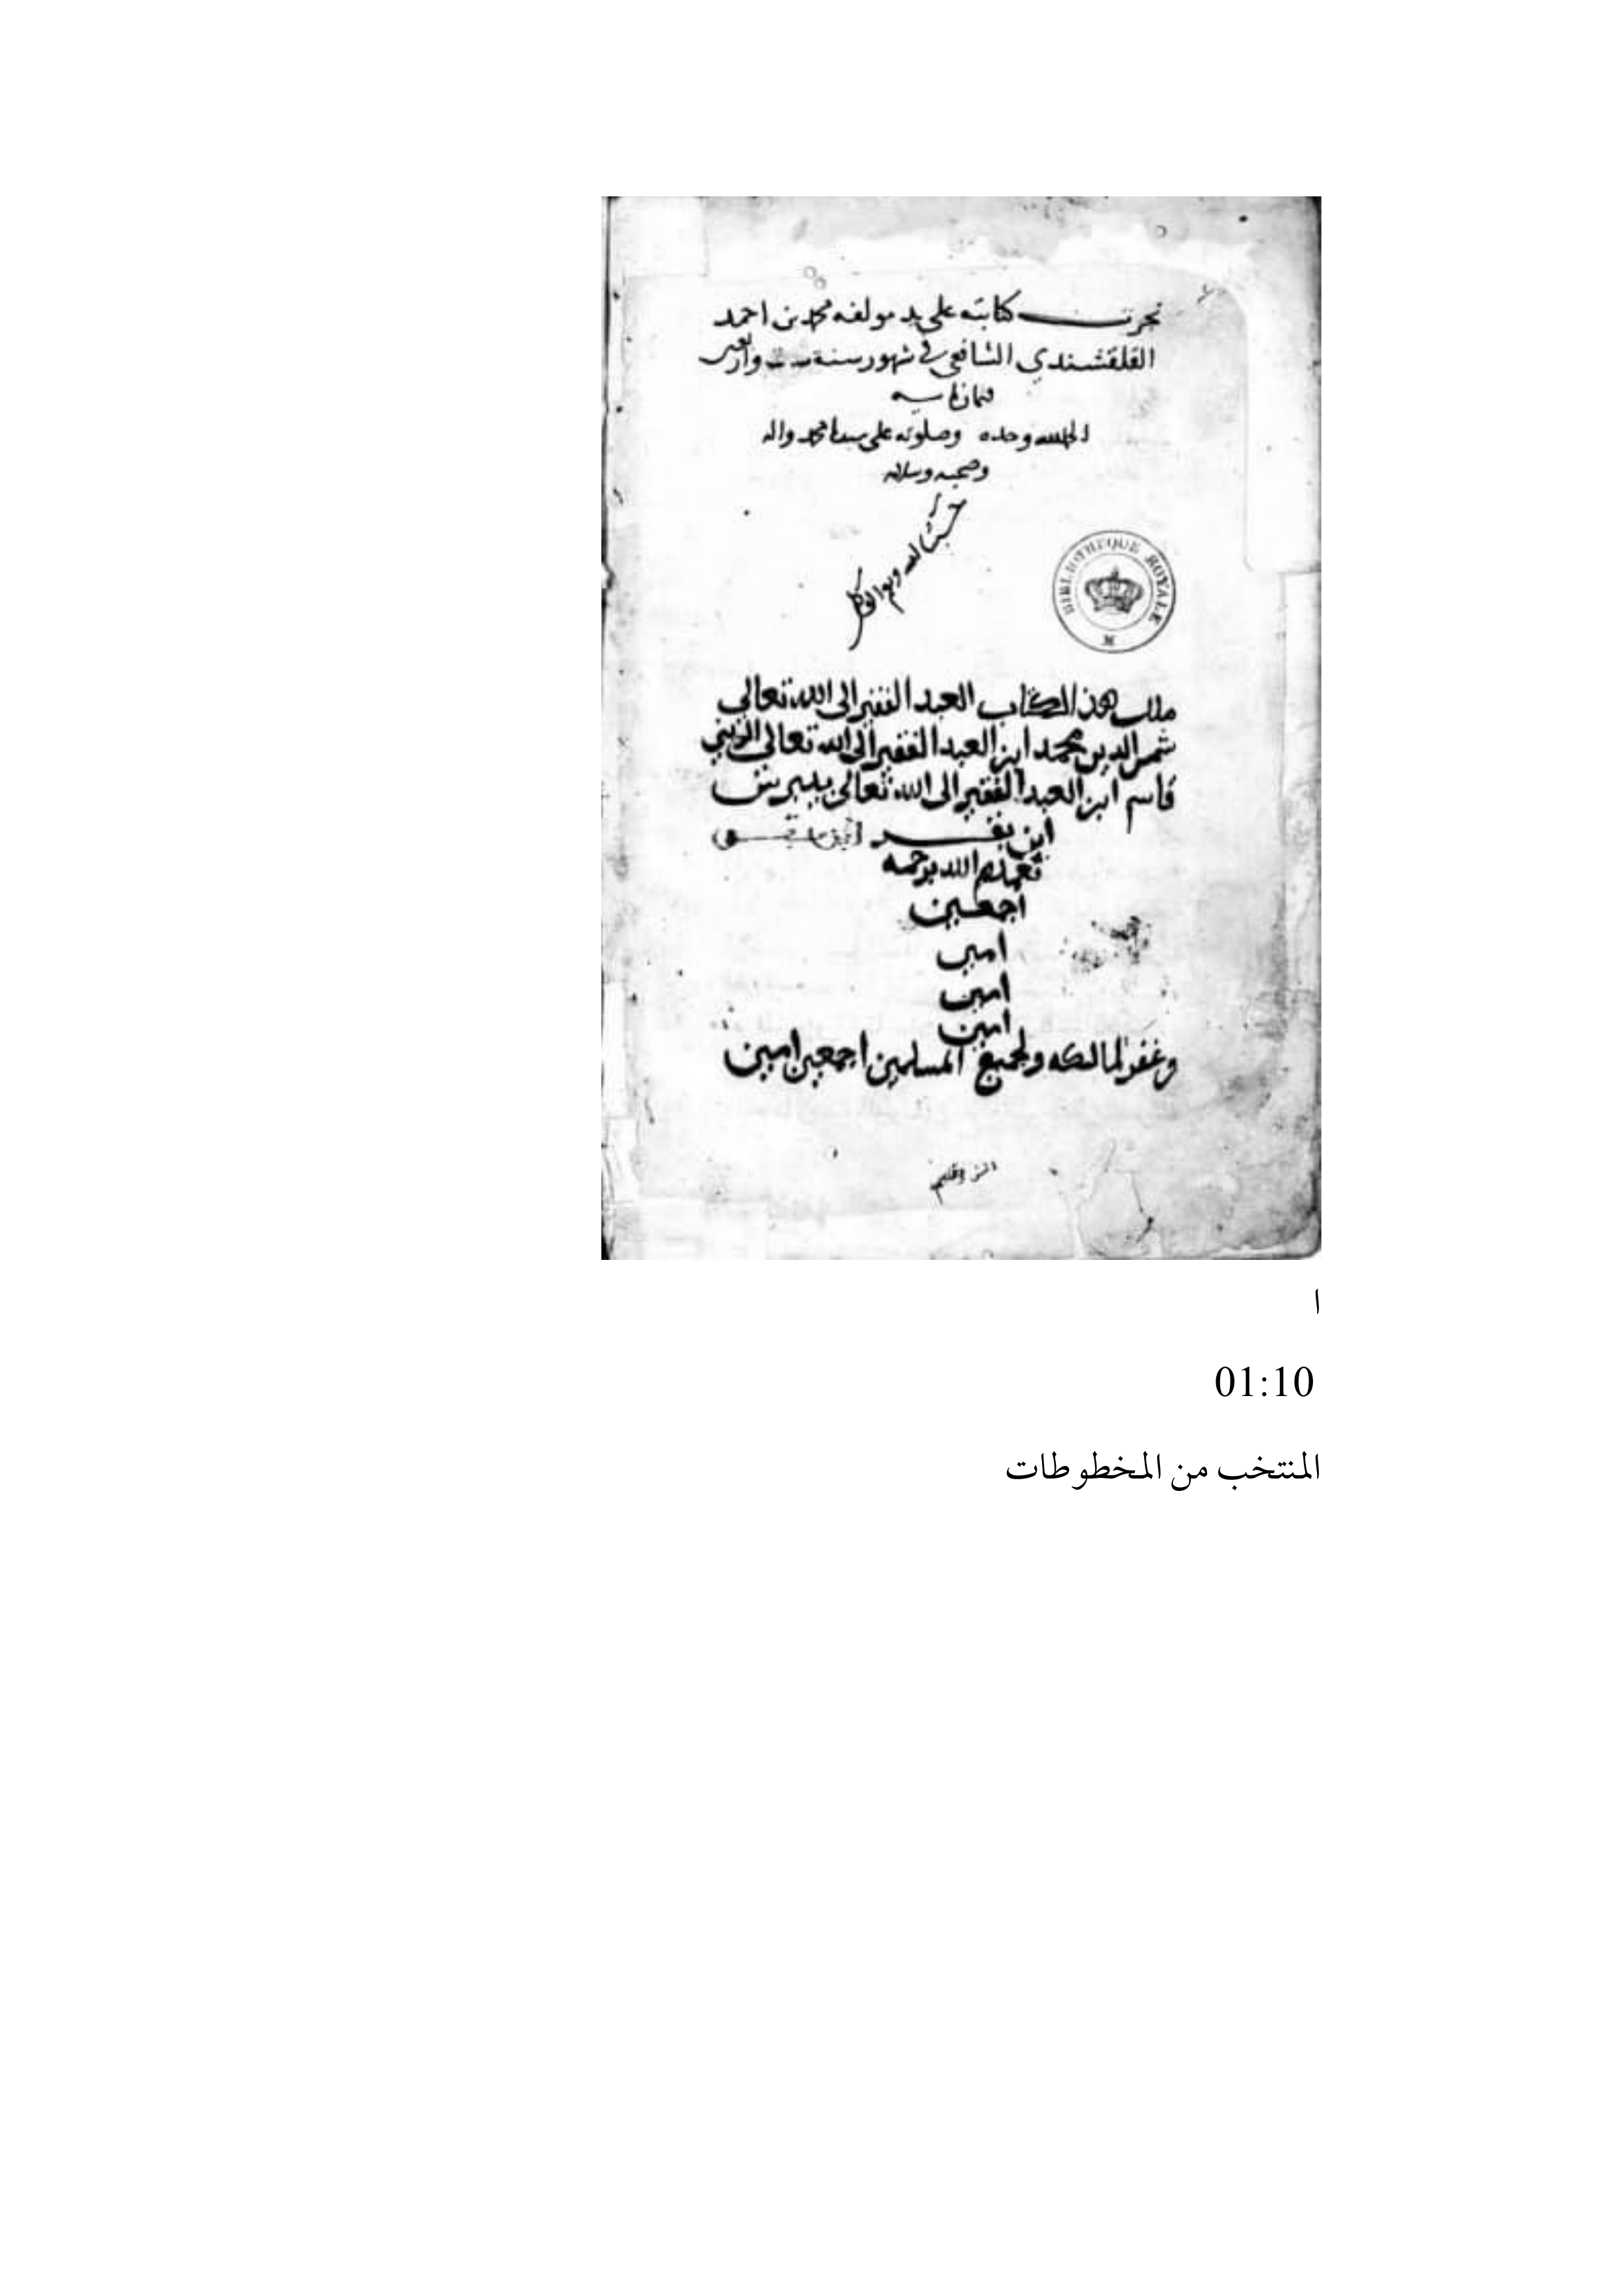 نجزت كتابته على يد مولفه محمد بن احمد
القلقشندي الشافعي في شهور سنة ست واربعين
وثمان مايه
الحمد لله وحده وصلوته على سيدنا محمد واله
وصحبه وسلامه
حسبنا الله ونعم الوكيل
BIBLIOTHEQUE ROYALE
ملك هذا الكتاب العبد الفقير الى الله تعالى
شمس الدين محمد ابن العبد الفقير الى الله تعالى الزيني
قاسم ابن العبد الفقير الى الله تعالى بيبرس
ابن بقر
تغمدهم الله برحمته
اجمعين
امين
امين
امين
وغفر لمالكه ولجميع المسلمين اجمعين امين
ا
01:10
المنتخب من المخطوطات